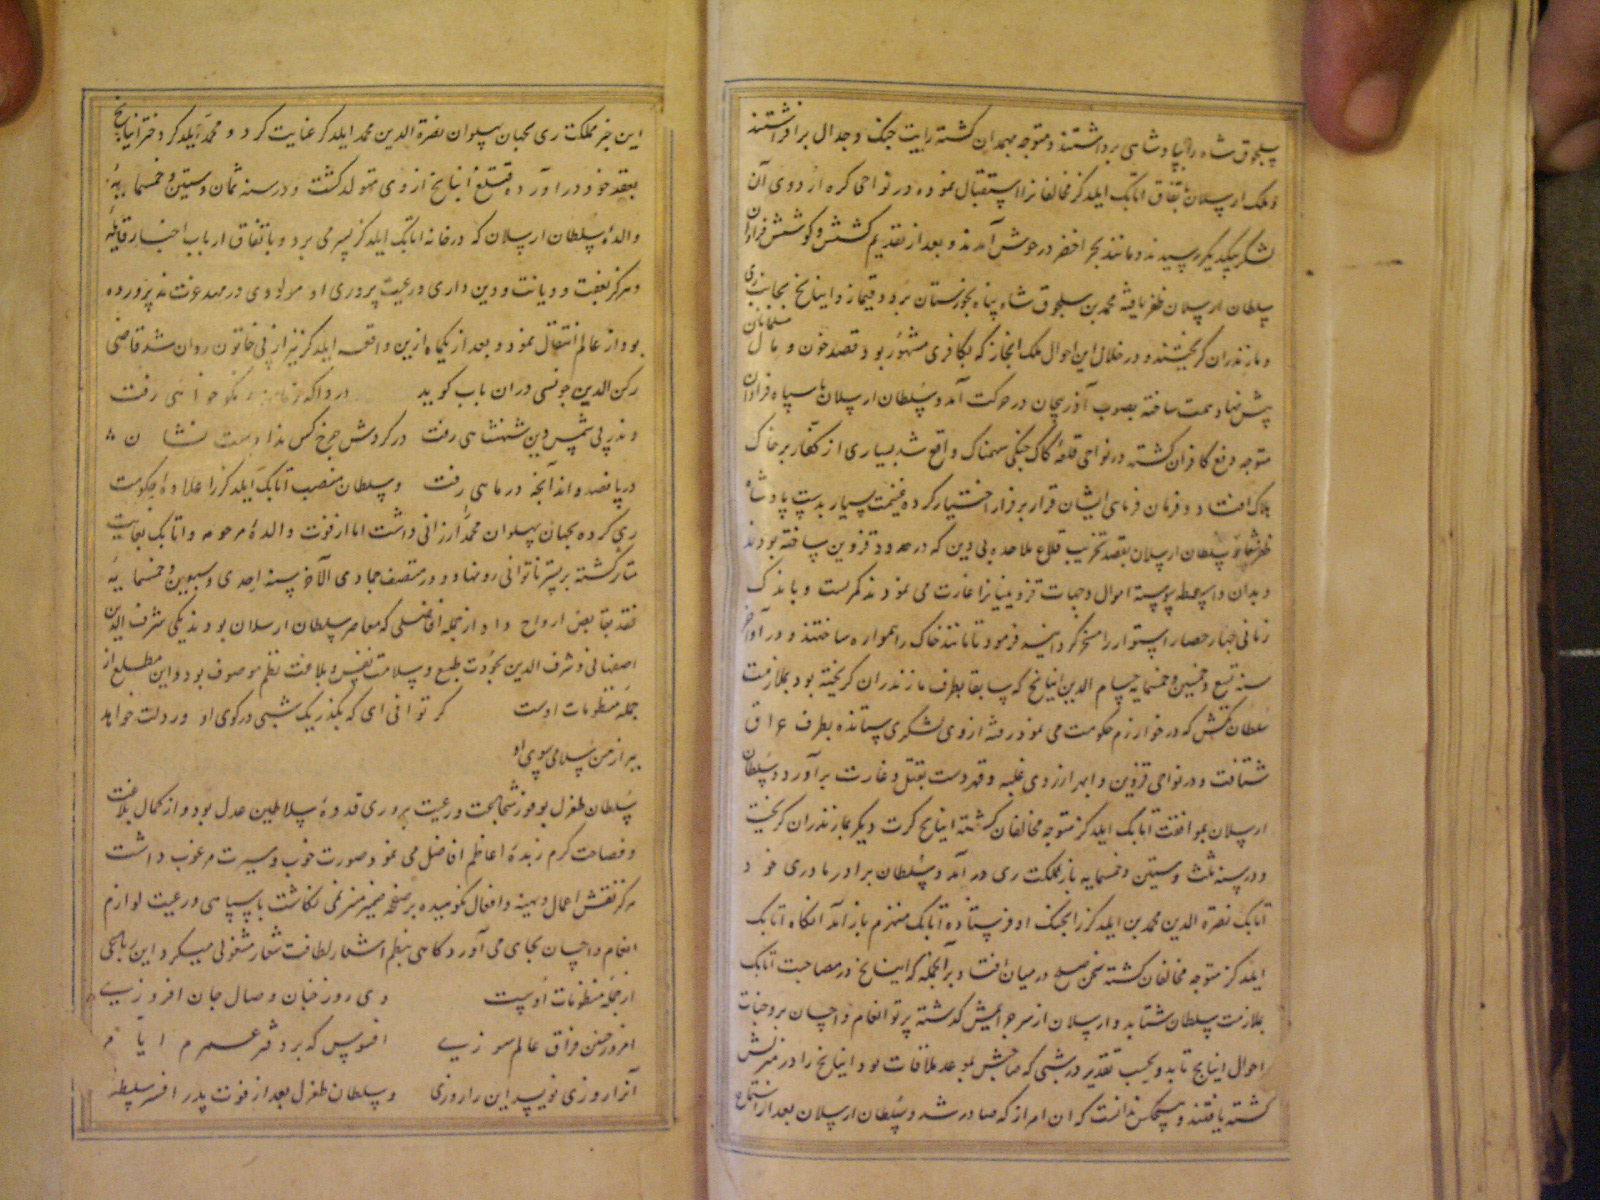 سلجوق شاه را بپادشاهی برداشتند و متوجه همدان کشته رایت جنک و جدال برافراشتند
و ملک ارسلان باتفاق اتابک ایلدکز مخالفانرا استقبال نموده در نواحی کره از دوی آن
لشکر بیکدیکر رسیدند و مانند بحر اخضر در جوش آمدند و بعد از تقدیم کشش و کوشش فراوان
سلطان ارسلان ظفر یافته محمد بن سلجوق شاه پناه بخوزستان برد و قیماز و اینانج بجانب ری
و مازندران کریختند و در خلال این احوال ملک ابخاز که بکافری مشهور بود قصد خون و مال مسلمانان
پیش نهاد همت ساخته بصوب آذربیجان در حرکت آمد و سلطان ارسلان با سپاه فراوان
متوجه دفع کافران کشته در نواحی قلعه کاک جنکی سهمناک واقع شد بسیاری از کفار بر خاک
هلاک افتاد و فرمان فرمای ایشان قرار بر فرار اختیار کرده غنیمت بسیار بدست پادشاه
سلطان ارسلان بقصد تخریب قلاع ملاحده بی دین که در حدود قزوین ساخته بودند
و بدان واسطه پیوسته اموال و جهات قزوینیانرا غارت می نمودند کمر بست و باندک
زمانی چهار حصار استوار را مسخر کردانیده فرمود تا مانند خاک راه هموار ساختند و در اواخر
سنه تسع و خمسین و خمسمایه حسام الدین اینانج که سابقا بطرف مازندران کریخته بود بملازمت
سلطان تکش که در خوارزم حکومت می نمود رفته از وی لشکری ستانده بطرف عراق
شتافت و در نواحی قزوین و ابهر از روی غلبه و قهر دست بقتل و غارت برآورد و سلطان
ارسلان بموافقت اتابک ایلدکز متوجه مخالفان کشته اینانج کرت دیکر بمازندران کریخت
و در سنه ثلث و ستین و خمسمایه باز بمملکت ری در آمد و سلطان برادر مادری خود
اتابک نصرة الدین محمد بن ایلدکز را بجنک او فرستاده اتابک منهزم باز آمد آنکاه اتابک
ایلدکز متوجه مخالفان کشته سخن صلح در میان افتاد و برآنجمله که اینانج در مصاحبت اتابک
بملازمت سلطان شتابد و ارسلان از سر جرایمش کذشته پرتو انعام و احسان بر وجنات
احوال اینانج تابد و بحسب تقدیر در شبی که صباحش موعد ملاقات بود اینانج را در منزلش
کشته یافتند و هیچکس ندانست که ان امر از که صادر شد و سلطان ارسلان بعد از استماع
این خبر مملکت ری بجهان پهلوان نصرة الدین محمد ایلدکز عنایت کرد و محمد ایلدکز دختر اینانج
بعقد خود در آورده قتلغ اینانج از وی متولد کشت و در سنه ثمان و ستین و خمسمایه
والده سلطان ارسلان که در خانه اتابک ایلدکز بسر می برد و باتفاق ارباب اخبار
هرکز بعفت و دیانت و دین داری و رعیت پروری او مولودی در مهد عزت نپرورده
بود از عالم انتقال نمود و بعد از یکماه ازین واقعه ایلدکز نیز از پی خاتون روان شد قاضی
رکن الدین جونسی در ان باب کوید
و ندر پی شمس دین شهنشاهی رفت در کردش چرخ کس ندادست نشان
در پانصد و اند آنجه در ماهی رفت و سلطان منصب اتابک ایلدکز را علاوه حکومت
ری کرده بجهان پهلوان محمد ارزانی داشت اما از فوت والده مرحومه و اتابک بغایت
متاثر کشته بر بستر ناتوانی رو نهاد و در منتصف جمادی الآخر سنه احدی و سبعین و خمسمایه
نقد بقا بقابض ارواح داد از جمله افاضلی که معاصر سلطان ارسلان بودند یکی شرف الدین
اصفهانی و شرف الدین بجودت طبع و سلامت نفس و بلاغت نظم موصوف بود و این مطلع از
جمله منظومات اوست کر توانی ای که بکذر یک شبی در کوی او ور دلت خواهد
ببر از من سلامی سوی او
سلطان طغرل بوفور شجاعت و رعیت پروری قدوه سلاطین عدل بود و از کمال بلاغت
و فصاحت کرم زبده اعاظم افاضل می نمود صورت خوب و سیرت مرغوب داشت
هرکز نقش اعمال دنیه و افعال نکوهیده بر صفحه ضمیر منیر نمی نکاشت با سپاهی و رعیت لوازم
انعام و احسان بجای می آورد کاهی بنظم اشعار لطافت شعار مشغولی میکرد این رباعی
از جمله منظومات اوست دی روز چنان وصال جان افروزی
امروز چنین فراق عالم سوزی افسوس که بر دفتر عمرم ایام
آنرا روزی نویسد این را روزی و سلطان طغرل بعد از فوت پدر افسر سلطنة